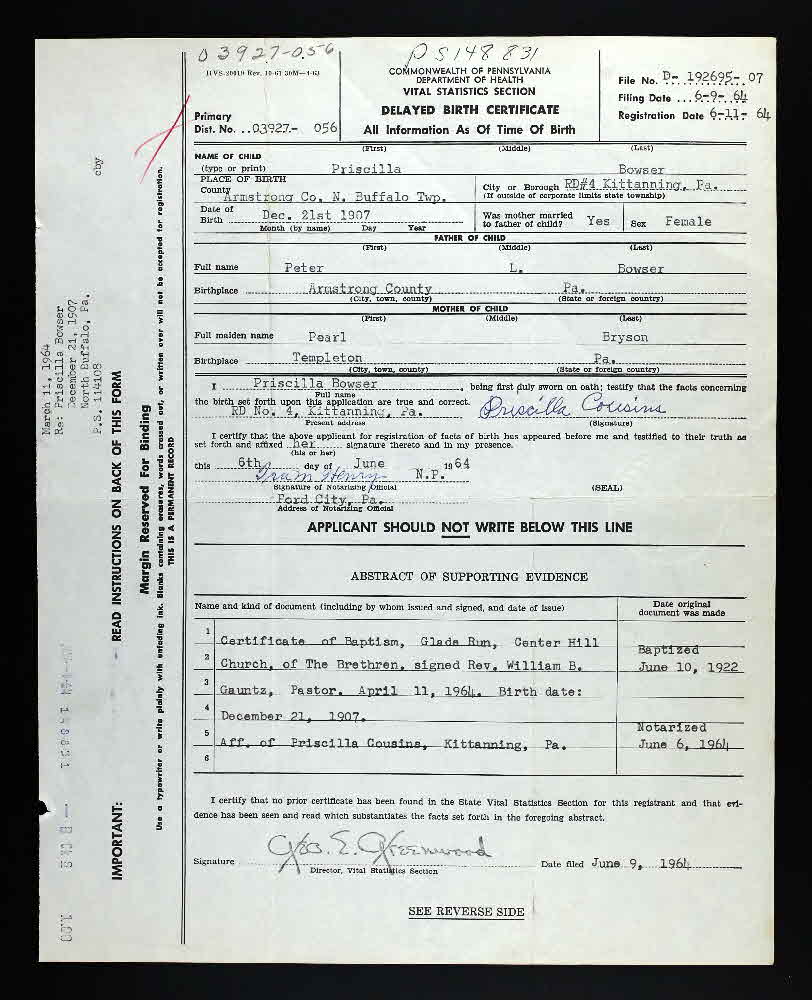 03927-056
HVS-20019 Rev. 10-61 30M—4-63
PS148831
COMMONWEALTH OF PENNSYLVANIA
DEPARTMENT OF HEALTH
VITAL STATISTICS SECTION
DELAYED BIRTH CERTIFICATE
All Information As Of Time Of Birth
Primary
Dist. No. ..03927- 056
File No. D- 192695- 07
Filing Date ...6-9- 64
Registration Date 6-11- 64
NAME OF CHILD (First) (Middle) (Last)
(type or print) Priscilla Bowser
PLACE OF BIRTH
County Armstrong Co. N. Buffalo Twp.
City or Borough RD#4 Kittanning, Pa.
(If outside of corporate limits state township)
Date of
Birth Dec. 21st 1907
Month (by name) Day Year
Was mother married
to father of child? Yes
Sex Female
FATHER OF CHILD
(First) (Middle) (Last)
Full name Peter L. Bowser
Birthplace Armstrong County Pa.
(City, town, county) (State or foreign country)
MOTHER OF CHILD
(First) (Middle) (Last)
Full maiden name Pearl Bryson
Birthplace Templeton Pa.
(City, town, county) (State or foreign country)
I Priscilla Bowser, being first duly sworn on oath; testify that the facts concerning
Full name
the birth set forth upon this application are true and correct.
RD No. 4, Kittanning, Pa. Priscilla Cousins
Present address (Signature)
I certify that the above applicant for registration of facts of birth has appeared before me and testified to their truth as
set forth and affixed her signature thereto and in my presence.
(his or her)
this 6th day of June 1964
N.P.
Signature of Notarizing Official (SEAL)
Ford City, Pa.
Address of Notarizing Official
APPLICANT SHOULD NOT WRITE BELOW THIS LINE
ABSTRACT OF SUPPORTING EVIDENCE
Name and kind of document (including by whom issued and signed, and date of issue)
Date original
document was made
1 Certificate of Baptism, Glade Run, Center Hill
Baptized
2 Church, of The Brethren, signed Rev. William B.
June 10, 1922
3 Gauntz, Pastor. April 11, 1964. Birth date:
4 December 21, 1907.
Notarized
5 Aff. of Priscilla Cousins, Kittanning, Pa.
June 6, 1964
6
I certify that no prior certificate has been found in the State Vital Statistics Section for this registrant and that evi-
dence has been seen and read which substantiates the facts set forth in the foregoing abstract.
Signature Geo. E. Greenwood
Director, Vital Statistics Section
Date filed June 9, 1964
SEE REVERSE SIDE
cby
March 11, 1964
Re: Priscilla Bowser
December 21, 1907
North Buffalo, Pa.
P.S. 114108
IMPORTANT: READ INSTRUCTIONS ON BACK OF THIS FORM
Margin Reserved For Binding
Use a typewriter or write plainly with unfading ink. Blanks containing erasures, words crossed out, or written over will not be accepted for registration.
THIS IS A PERMANENT RECORD
1.00